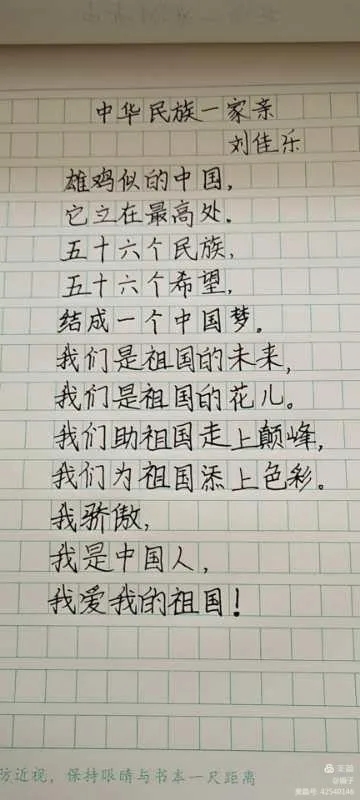 中华民族一家亲
刘佳乐
雄鸡似的中国,
它立在最高处。
五十六个民族,
五十六个希望,
结成一个中国梦。
我们是祖国的未来,
我们是祖国的花儿。
我们助祖国走上颠峰,
我们为祖国添上色彩。
我骄傲,
我是中国人,
我爱我的祖国!
防近视,保持眼睛与书本一尺距离
美篇
美篇号 42540146